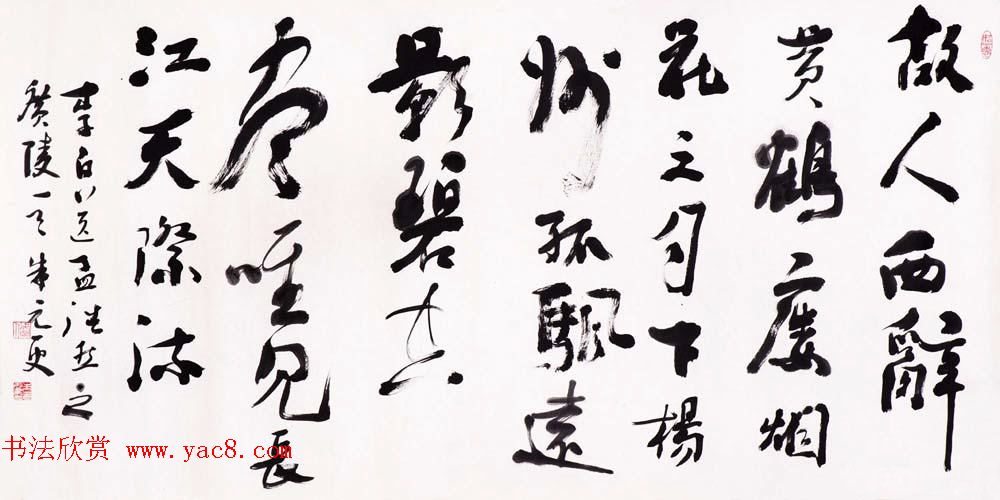 故人西辭
黄鶴廔烟
花三月下楊
州孤颿遠
影碧空
盡唯見長
江天際流
李白送孟浩然之
廣陵一首朱元更
书法欣赏 www.yac8.com